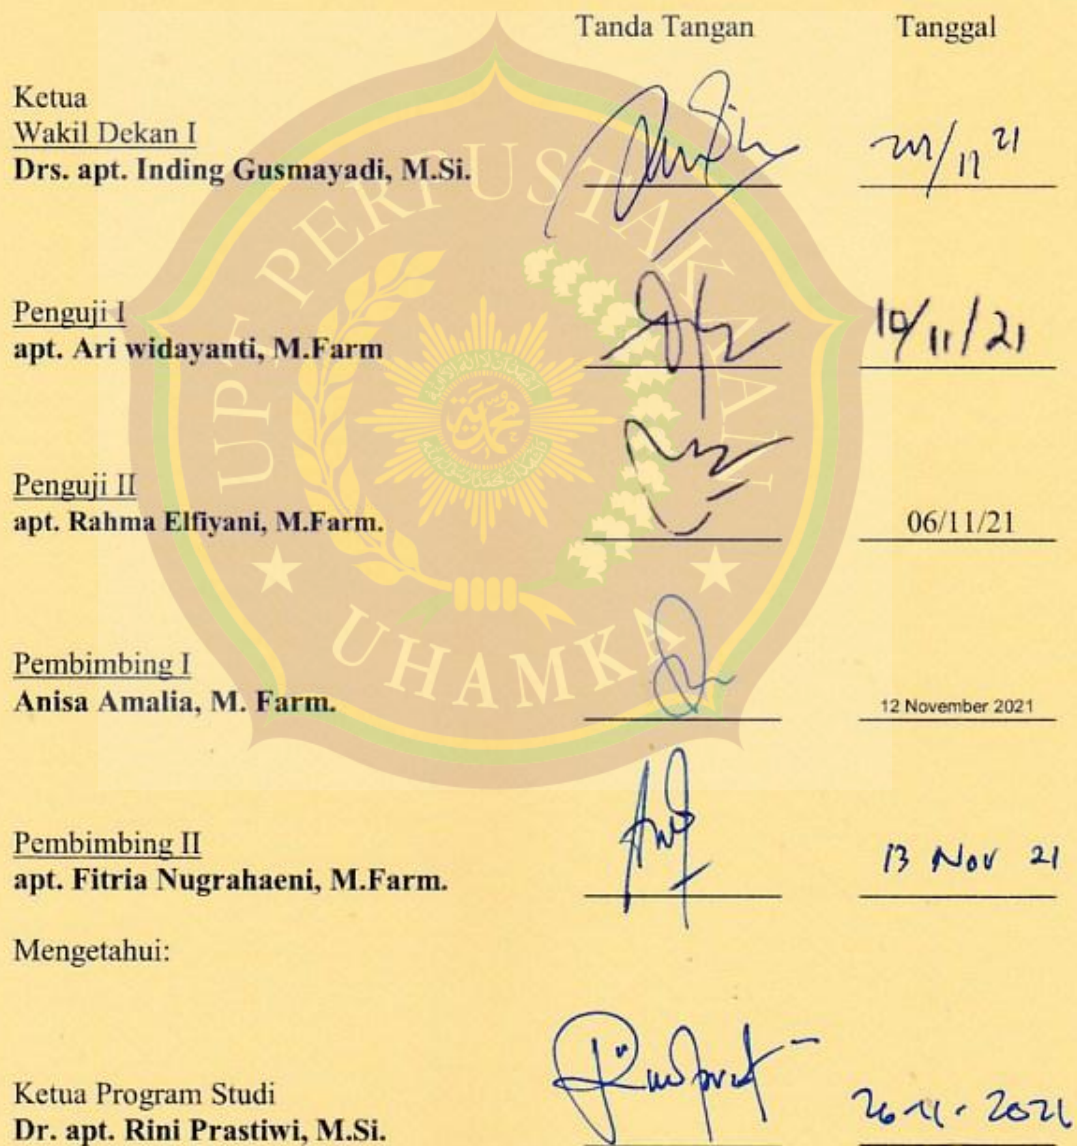 Tanda Tangan Tanggal
Ketua
Wakil Dekan I
Drs. apt. Inding Gusmayadi, M.Si.
Penguji I
apt. Ari widayanti, M.Farm
Penguji II
apt. Rahma Elfiyani, M.Farm. 06/11/21
Pembimbing I
Anisa Amalia, M. Farm. 12 November 2021
Pembimbing II
apt. Fitria Nugrahaeni, M.Farm. 13 Nov 21
Mengetahui:
Ketua Program Studi
Dr. apt. Rini Prastiwi, M.Si. 26-11-2021
UPT PERPUSTAKAAN
UHAMKA